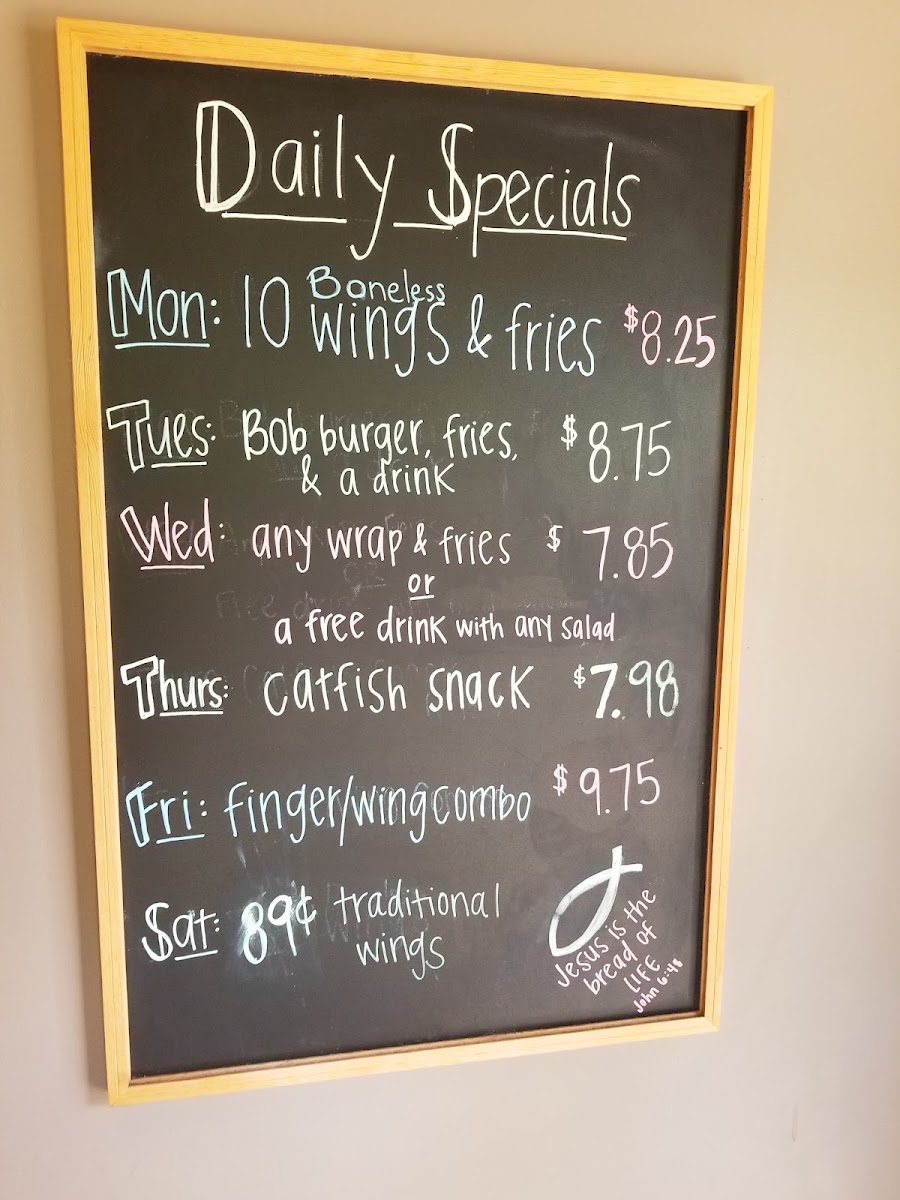 Daily Specials
Mon: 10 Boneless wings & fries $8.25
Tues: Bob burger, fries, $8.75
& a drink
Wed: any wrap & fries $7.85
or
a free drink with any salad
Thurs: catfish snack $7.98
Fri: finger/wing combo $9.75
Sat: 89¢ traditional
wings
Jesus is the
bread of
LIFE
John 6:48